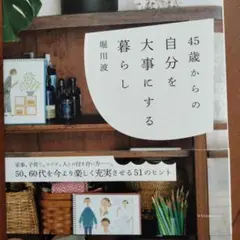 45歳からの
自分を
大事にする
暮らし
堀川波
家事、子育て、スマイル、人との付き合い方……
50、60代を今より楽しく充実させる51のヒント